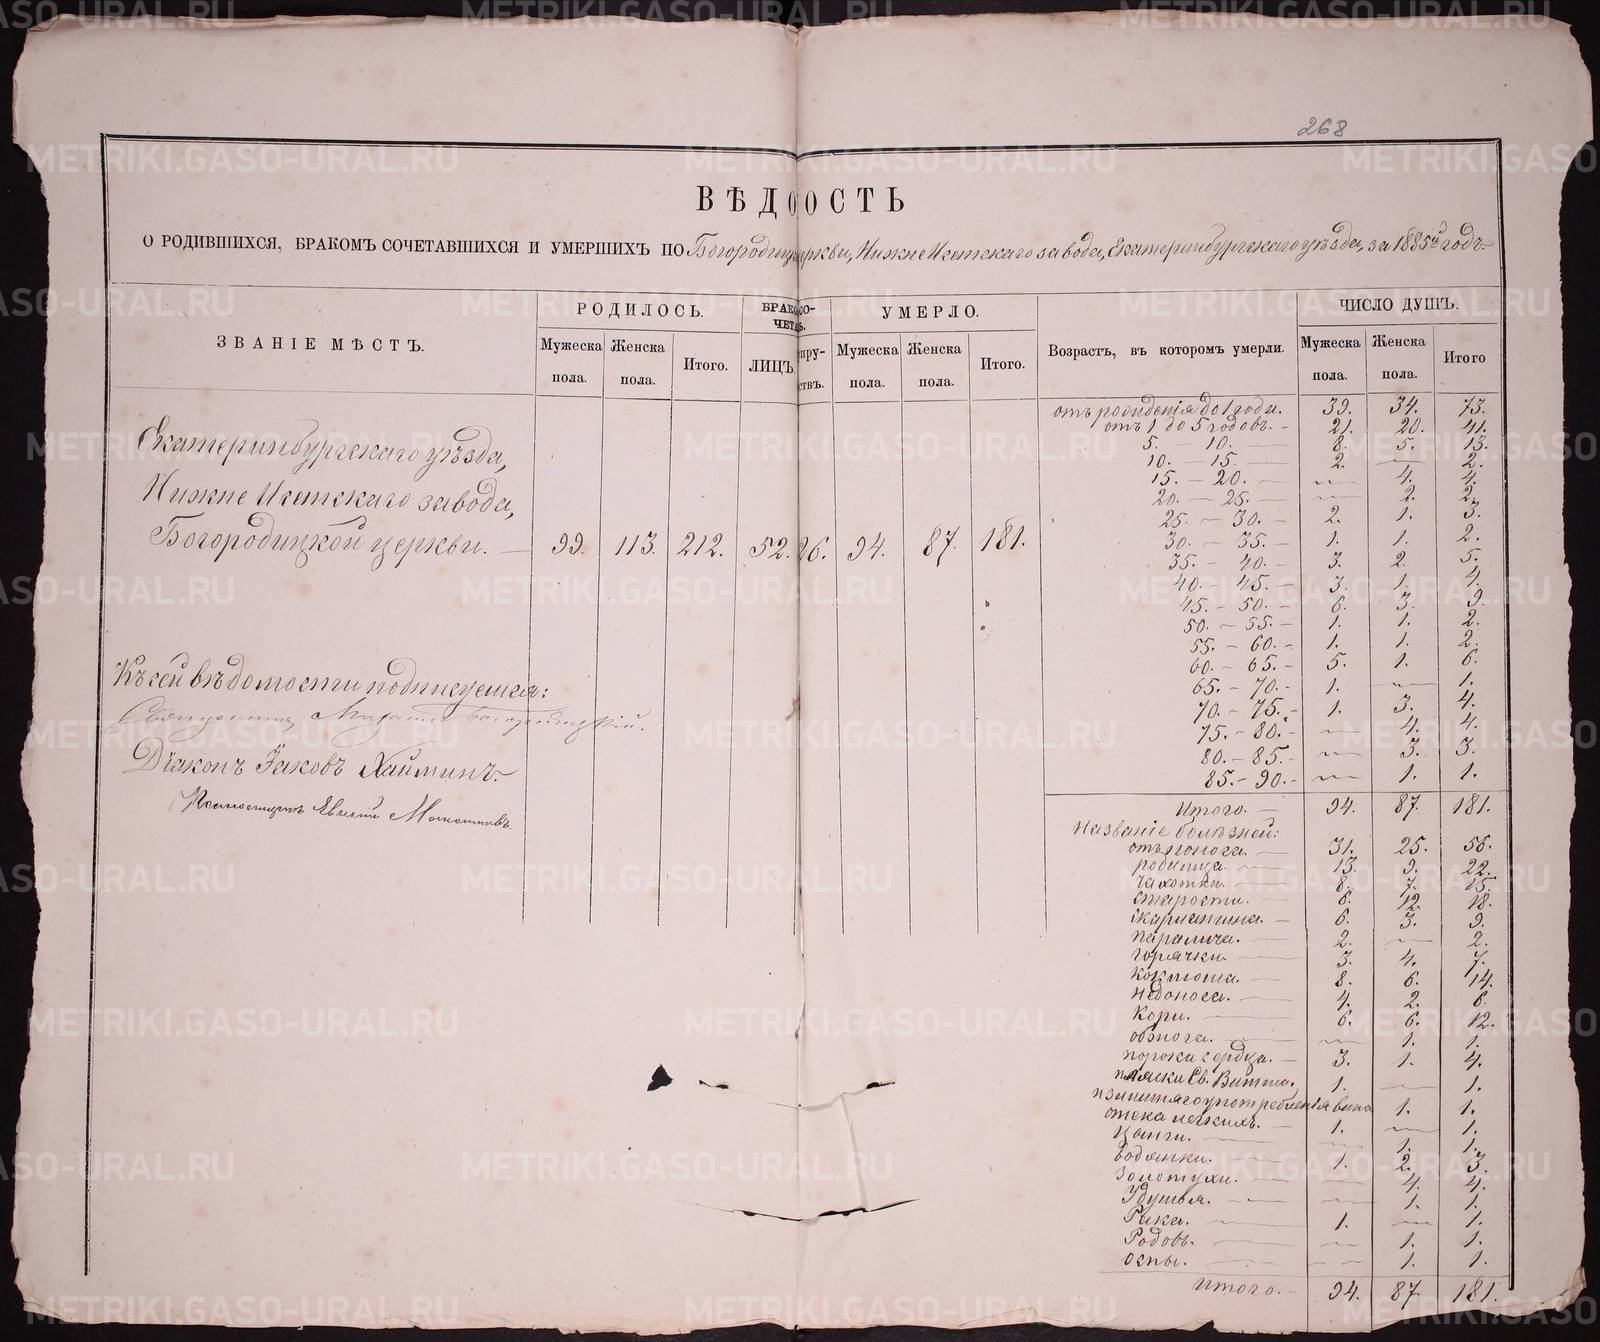 268
ВѢДОМОСТЬ
О РОДИВШИХСЯ, БРАКОМЪ СОЧЕТАВШИХСЯ И УМЕРШИХЪ ПО Богородиц церкви, Нижне Исетскаго завода, Екатеринбургскаго уѣзда, за 1885й годъ
ЗВАНІЕ МѢСТЪ. РОДИЛОСЬ. БРАКОСО- УМЕРЛО. Возрастъ, въ которомъ умерли. ЧИСЛО ДУШЪ.
ЧЕТАЛ.
Мужеска пола. Женска пола. Итого. ЛИЦЪ. пру-ствъ. Мужеска пола. Женска пола. Итого. Мужеска пола. Женска пола. Итого
Екатеринбургскаго уѣзда,
Нижне Исетскаго завода,
Богородицкой церкви. — 99. 113. 212. 52. 26. 94. 87. 181.
Къ сей вѣдомости подписуемся:
Священникъ Михаилъ Богородицкій.
Діаконъ Іаковъ Хайминъ.
Псаломщикъ Евгеній
отъ рожденія до 1 года. 39. 34. 73.
отъ 1 до 5 годовъ. - 21. 20. 41.
5. — 10. — 8. 5. 13.
10. — 15. — 2. — 2.
15. — 20. — — 4. 4.
20. — 25. — — 2. 2.
25. — 30. — 2. 1. 3.
30. — 35. — 1. 1. 2.
35. — 40. — 3. 2. 5.
40. — 45. — 3. 1. 4.
45. — 50. — 6. 3. 9.
50. — 55. — 1. 1. 2.
55. — 60. — 1. 1. 2.
60. — 65. — 5. 1. 6.
65. — 70. — 1. — 1.
70. — 75. — 1. 3. 4.
75. — 80. — — 4. 4.
80. — 85. — — 3. 3.
85. — 90. — — 1. 1.
Итого. — 94. 87. 181.
Названіе болѣзней:
отъ поноса. — 31. 25. 56.
родимца. — 13. 9. 22.
чахотки. — 8. 7. 15.
старости. — 6. 12. 18.
скарлатина. — 6. 3. 9.
паралича. — 2. — 2.
горячки. — 3. 4. 7.
коклюша. — 8. 6. 14.
недоноса. — 4. 2. 6.
кори. — 6. 6. 12.
обжога. — — 1. 1.
порока сердца. — 3. 1. 4.
пляски Св. Витта. 1. — 1.
излишняго употребленія вина 1. 1.
отека легкихъ. — 1. — 1.
цынги. — — 1. 1.
водянки. — 1. 2. 3.
золотухи. — — 4. 4.
Удушья. — — 1. 1.
Рака. — 1. — 1.
Родовъ. — — 1. 1.
оспы. — — 1. 1.
Итого. — 94. 87. 181.
METRIKI.GASO-URAL.RU